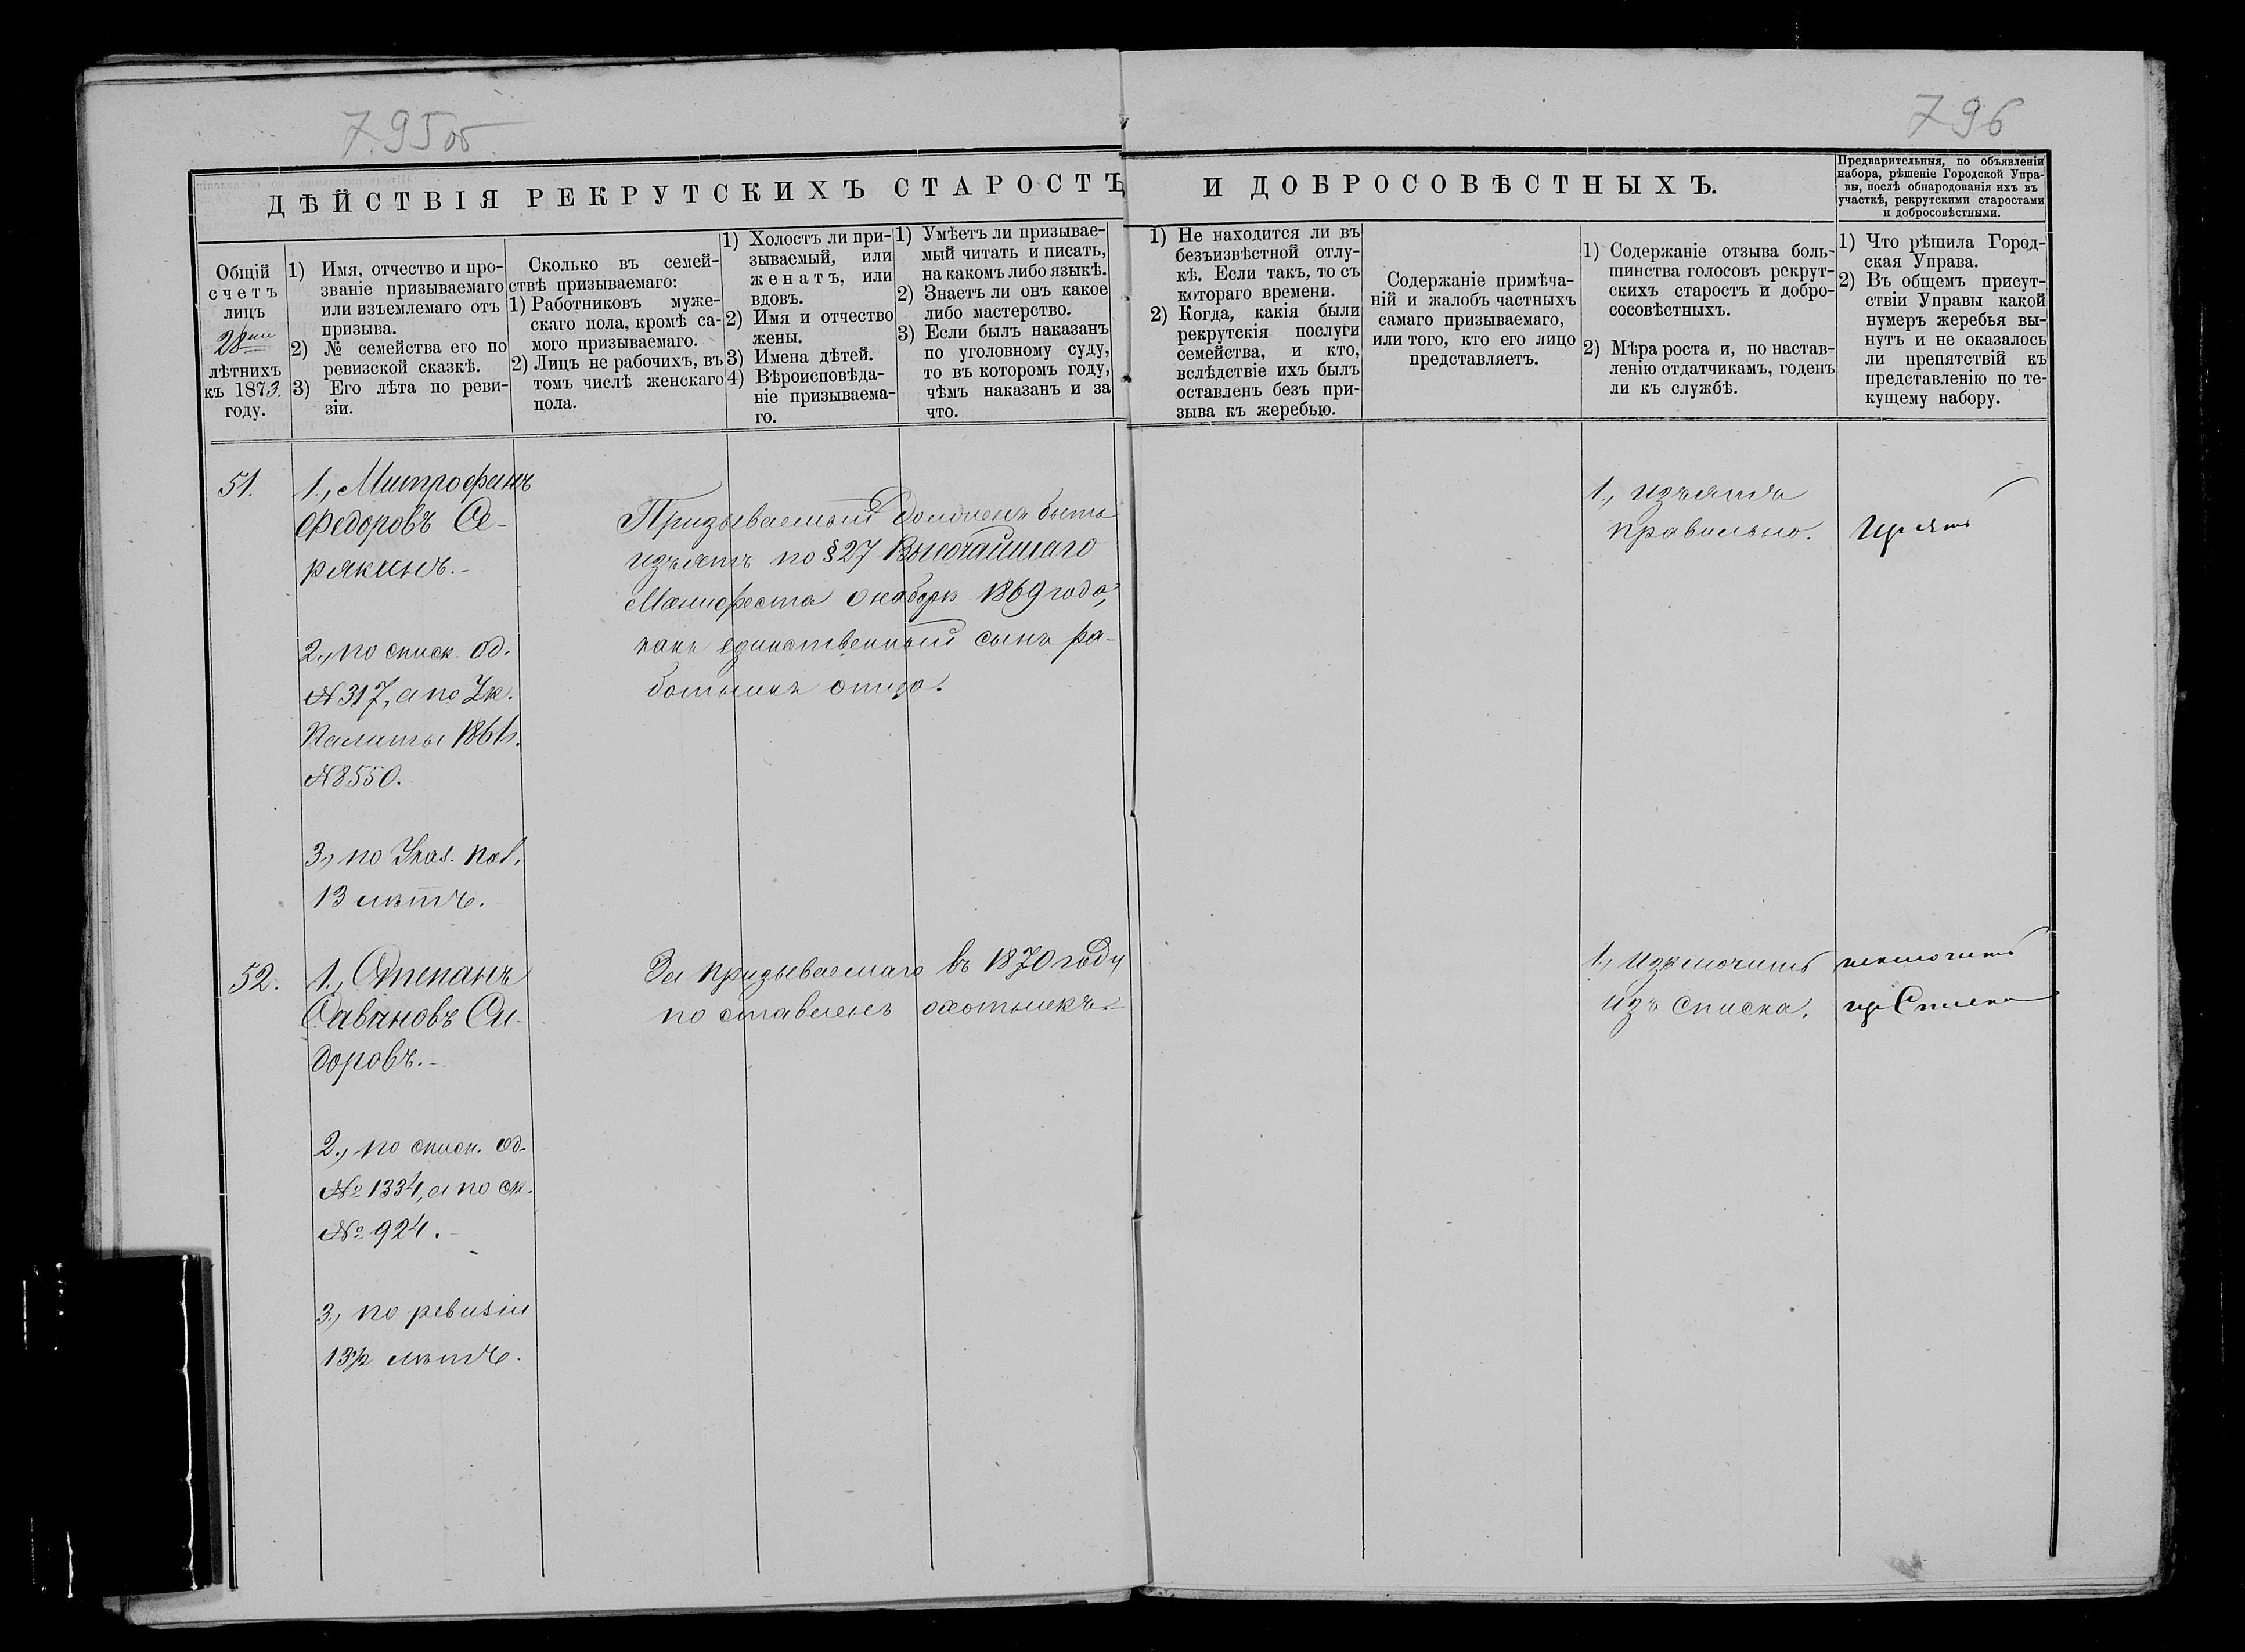 795об.
796
ДѢЙСТВІЯ РЕКРУТСКИХЪ СТАРОСТЪ И ДОБРОСОВѢСТНЫХЪ.
Предварительныя, по объявленіи
набора, рѣшеніе Городской Упра-
вы, послѣ обнародованія ихъ въ
участкѣ, рекрутскими старостами
и добросовѣстными.
Общій
счетъ
лицъ
28ми
лѣтнихъ
къ 1873.
году.
1) Имя, отчество и про-
званіе призываемаго
или изъемлемаго отъ
призыва.
2) № семейства его по
ревизской сказкѣ.
3) Его лѣта по реви-
зіи.
Сколько въ семей-
ствѣ призываемаго:
1) Работниковъ муже-
скаго пола, кромѣ са-
мого призываемаго.
2) Лицъ не рабочихъ, въ
томъ числѣ женскаго
пола.
1) Холостъ ли при-
зываемый, или
женатъ, или
вдовъ.
2) Имя и отчество
жены.
3) Имена дѣтей.
4) Вѣроисповѣда-
ніе призываема-
го.
1) Умѣетъ ли призывае-
мый читать и писать,
на какомъ либо языкѣ.
2) Знаетъ ли онъ какое
либо мастерство.
3) Если былъ наказанъ
по уголовному суду,
то въ которомъ году,
чѣмъ наказанъ и за
что.
1) Не находится ли въ
безъизвѣстной отлу-
кѣ. Если такъ, то съ
котораго времени.
2) Когда, какія были
рекрутскія послуги
семейства, и кто,
вслѣдствіе ихъ былъ
оставленъ безъ при-
зыва къ жеребью.
Содержаніе примѣча-
ній и жалобъ частныхъ
самаго призываемаго,
или того, кто его лицо
представляетъ.
1) Содержаніе отзыва боль-
шинства голосовъ рекрут-
скихъ старостъ и добро-
сосовѣстныхъ.
2) Мѣра роста и, по настав-
ленію отдатчикамъ, годенъ
ли къ службѣ.
1) Что рѣшила Город-
ская Управа.
2) Въ общемъ присут-
ствіи Управы какой
нумеръ жеребья вы-
нутъ и не оказалось
ли препятствій къ
представленію по те-
кущему набору.
51.
1., Митрофанъ
Федоровъ Се-
рякинъ.-
2., по списк. од.
N 317, а по Ук.
Палаты 1861г.
N 8550.
3., по Указ. Пал.
13 лѣтъ.
Призываемый долженъ быть
изъятъ по § 27 Высочайшаго
Манифеста октября 1869 года,
какъ единственный сынъ ра-
ботникъ отца.
1., изъятъ
правильно.
52.
1., Степанъ
Савиновъ Си-
доровъ.-
2., по списк. од.
№ 1334, а по ск.
№ 924.-
3., по ревизіи
13½ лѣтъ.
За призываемаго въ 1870 году
поставленъ охотникъ.-
1., Изключить
изъ списка.
исключить
изъ Списка